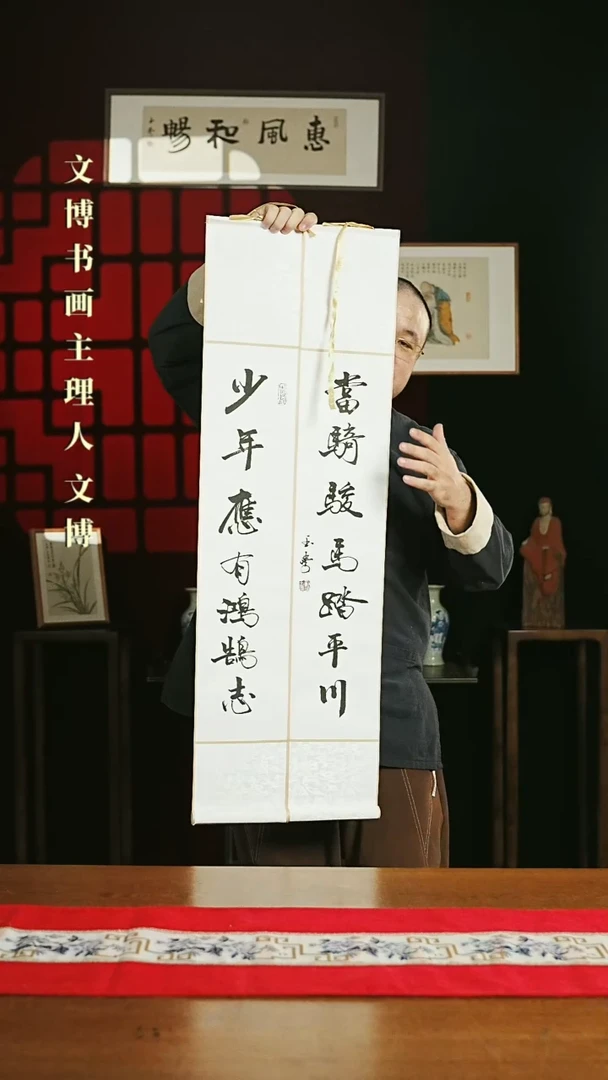 惠風和暢
文博书画主理人文博
少年應有鴻鵠志
當騎駿馬踏平川